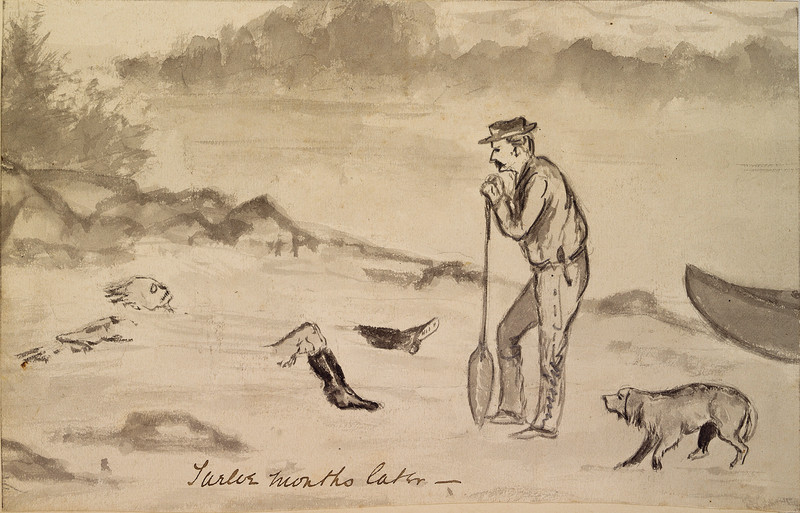 Twelve months later —